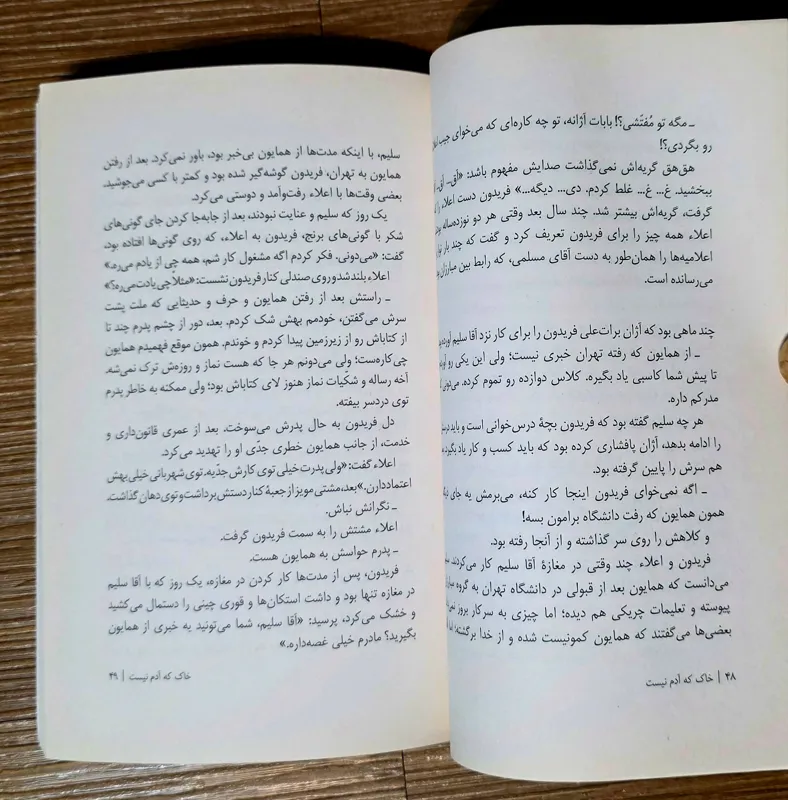 ـ مگه تو مُفتّشی؟! بابات آژانه، تو چه کاره‌ای که می‌خوای جیب
رو بگردی؟!
هق‌هق گریه‌اش نمی‌گذاشت صدایش مفهوم باشد: «آق‌ـ آق‌ـ
ببخشید. غ... غ... غلط کردم. دی... دیگه...» فریدون دست اعلاء را
گرفت، گریه‌اش بیشتر شد. چند سال بعد وقتی هر دو نوزده‌ساله
اعلاء همه چیز را برای فریدون تعریف کرد و گفت که چند بار
اعلامیه‌ها را همان‌طور به دست آقای مسلمی، که رابط بین مبارزان
می‌رسانده است.
چند ماهی بود که آژان برات‌علی فریدون را برای کار نزد آقا سلیم
ـ از همایون که رفته تهران خبری نیست؛ ولی این یکی رو
تا پیش شما کاسبی یاد بگیره. کلاس دوازده رو تموم کرده.
مدرکم داره.
هر چه سلیم گفته بود که فریدون بچهٔ درس‌خوانی است و باید
را ادامه بدهد، آژان پافشاری کرده بود که باید کسب و کار یاد بگیرد.
هم سرش را پایین گرفته بود.
ـ اگه نمی‌خوای فریدون اینجا کار کنه، می‌برمش یه جای
همون همایون که رفت دانشگاه برامون بسه!
و کلاهش را روی سر گذاشته و از آنجا رفته بود.
فریدون و اعلاء چند وقتی در مغازهٔ آقا سلیم کار می‌کردند.
می‌دانست که همایون بعد از قبولی در دانشگاه تهران به گروه
پیوسته و تعلیمات چریکی هم دیده؛ اما چیزی به سرکار بروز
بعضی‌ها می‌گفتند که همایون کمونیست شده و از خدا برگشته؛
۴۸ | خاک که آدم نیست
سلیم، با اینکه مدت‌ها از همایون بی‌خبر بود، باور نمی‌کرد. بعد از رفتن
همایون به تهران، فریدون گوشه‌گیر شده بود و کمتر با کسی می‌جوشید.
بعضی وقت‌ها با اعلاء رفت‌وآمد و دوستی می‌کرد.
یک روز که سلیم و عنایت نبودند، بعد از جابه‌جا کردن جای گونی‌های
شکر با گونی‌های برنج، فریدون به اعلاء، که روی گونی‌ها افتاده بود،
گفت: «می‌دونی، فکر کردم اگه مشغول کار شم، همه چی از یادم می‌ره.»
اعلاء بلند شد و روی صندلی کنار فریدون نشست: «مثلاً چی یادت می‌ره؟»
ـ راستش بعد از رفتن همایون و حرف و حدیثایی که ملت پشت
سرش می‌گفتن، خودمم بهش شک کردم. بعد، دور از چشم پدرم چند تا
از کتاباش رو از زیرزمین پیدا کردم و خوندم. همون موقع فهمیدم همایون
چی‌کاره‌ست؛ ولی می‌دونم هر جا که هست نماز و روزه‌ش ترک نمی‌شه.
آخه رساله و شکیات نماز هنوز لای کتاباش بود؛ ولی ممکنه به خاطر پدرم
توی دردسر بیفته.
دل فریدون به حال پدرش می‌سوخت. بعد از عمری قانون‌داری و
خدمت، از جانب همایون خطری جدّی او را تهدید می‌کرد.
اعلاء گفت: «ولی پدرت خیلی توی کارش جدّیه. توی شهربانی خیلی بهش
اعتماد دارن.» بعد، مشتی مویز از جعبهٔ کنار دستش برداشت و توی دهان گذاشت.
ـ نگرانش نباش.
اعلاء مشتش را به سمت فریدون گرفت.
ـ پدرم حواسش به همایون هست.
فریدون، پس از مدت‌ها کار کردن در مغازه، یک روز که با آقا سلیم
در مغازه تنها بود و داشت استکان‌ها و قوری چینی را دستمال می‌کشید
و خشک می‌کرد، پرسید: «آقا سلیم، شما می‌تونید یه خبری از همایون
بگیرید؟ مادرم خیلی غصه‌داره.»
خاک که آدم نیست | ۴۹